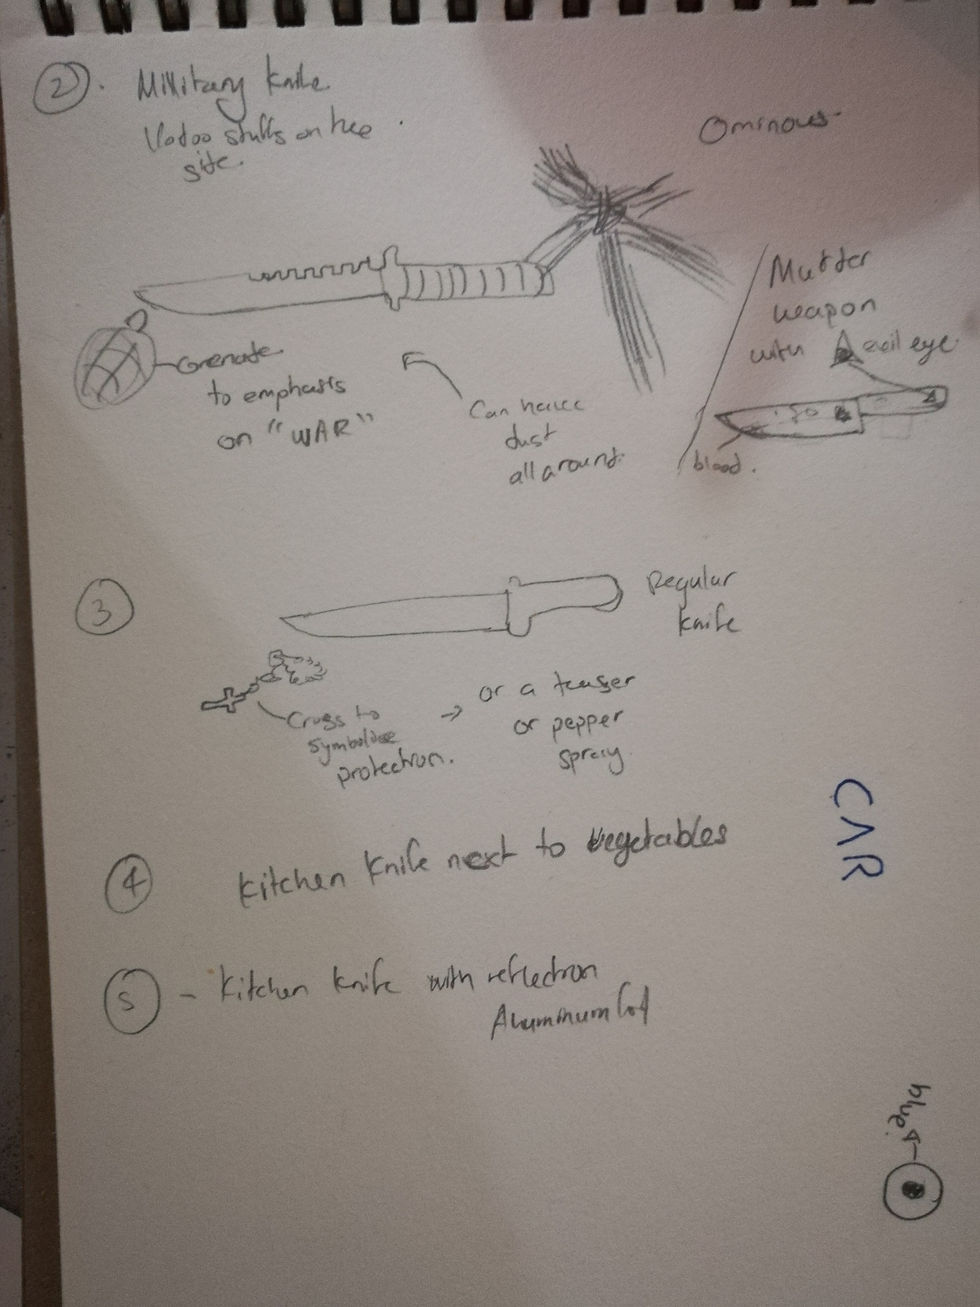 2.
Military knife
Vodoo stuffs on hee
site.
Ominous
Grenate
to emphasis
on "WAR"
Can have
dust
all around.
Murder
weapon
with A evil eye
blood.
3
Regular
knife
Cross to
symbolize
protection.
→ or a teaser
or pepper
spray
4
kitchen knife next to vegetables
CAR
5 - kitchen knife with reflection
Aluminum
blue